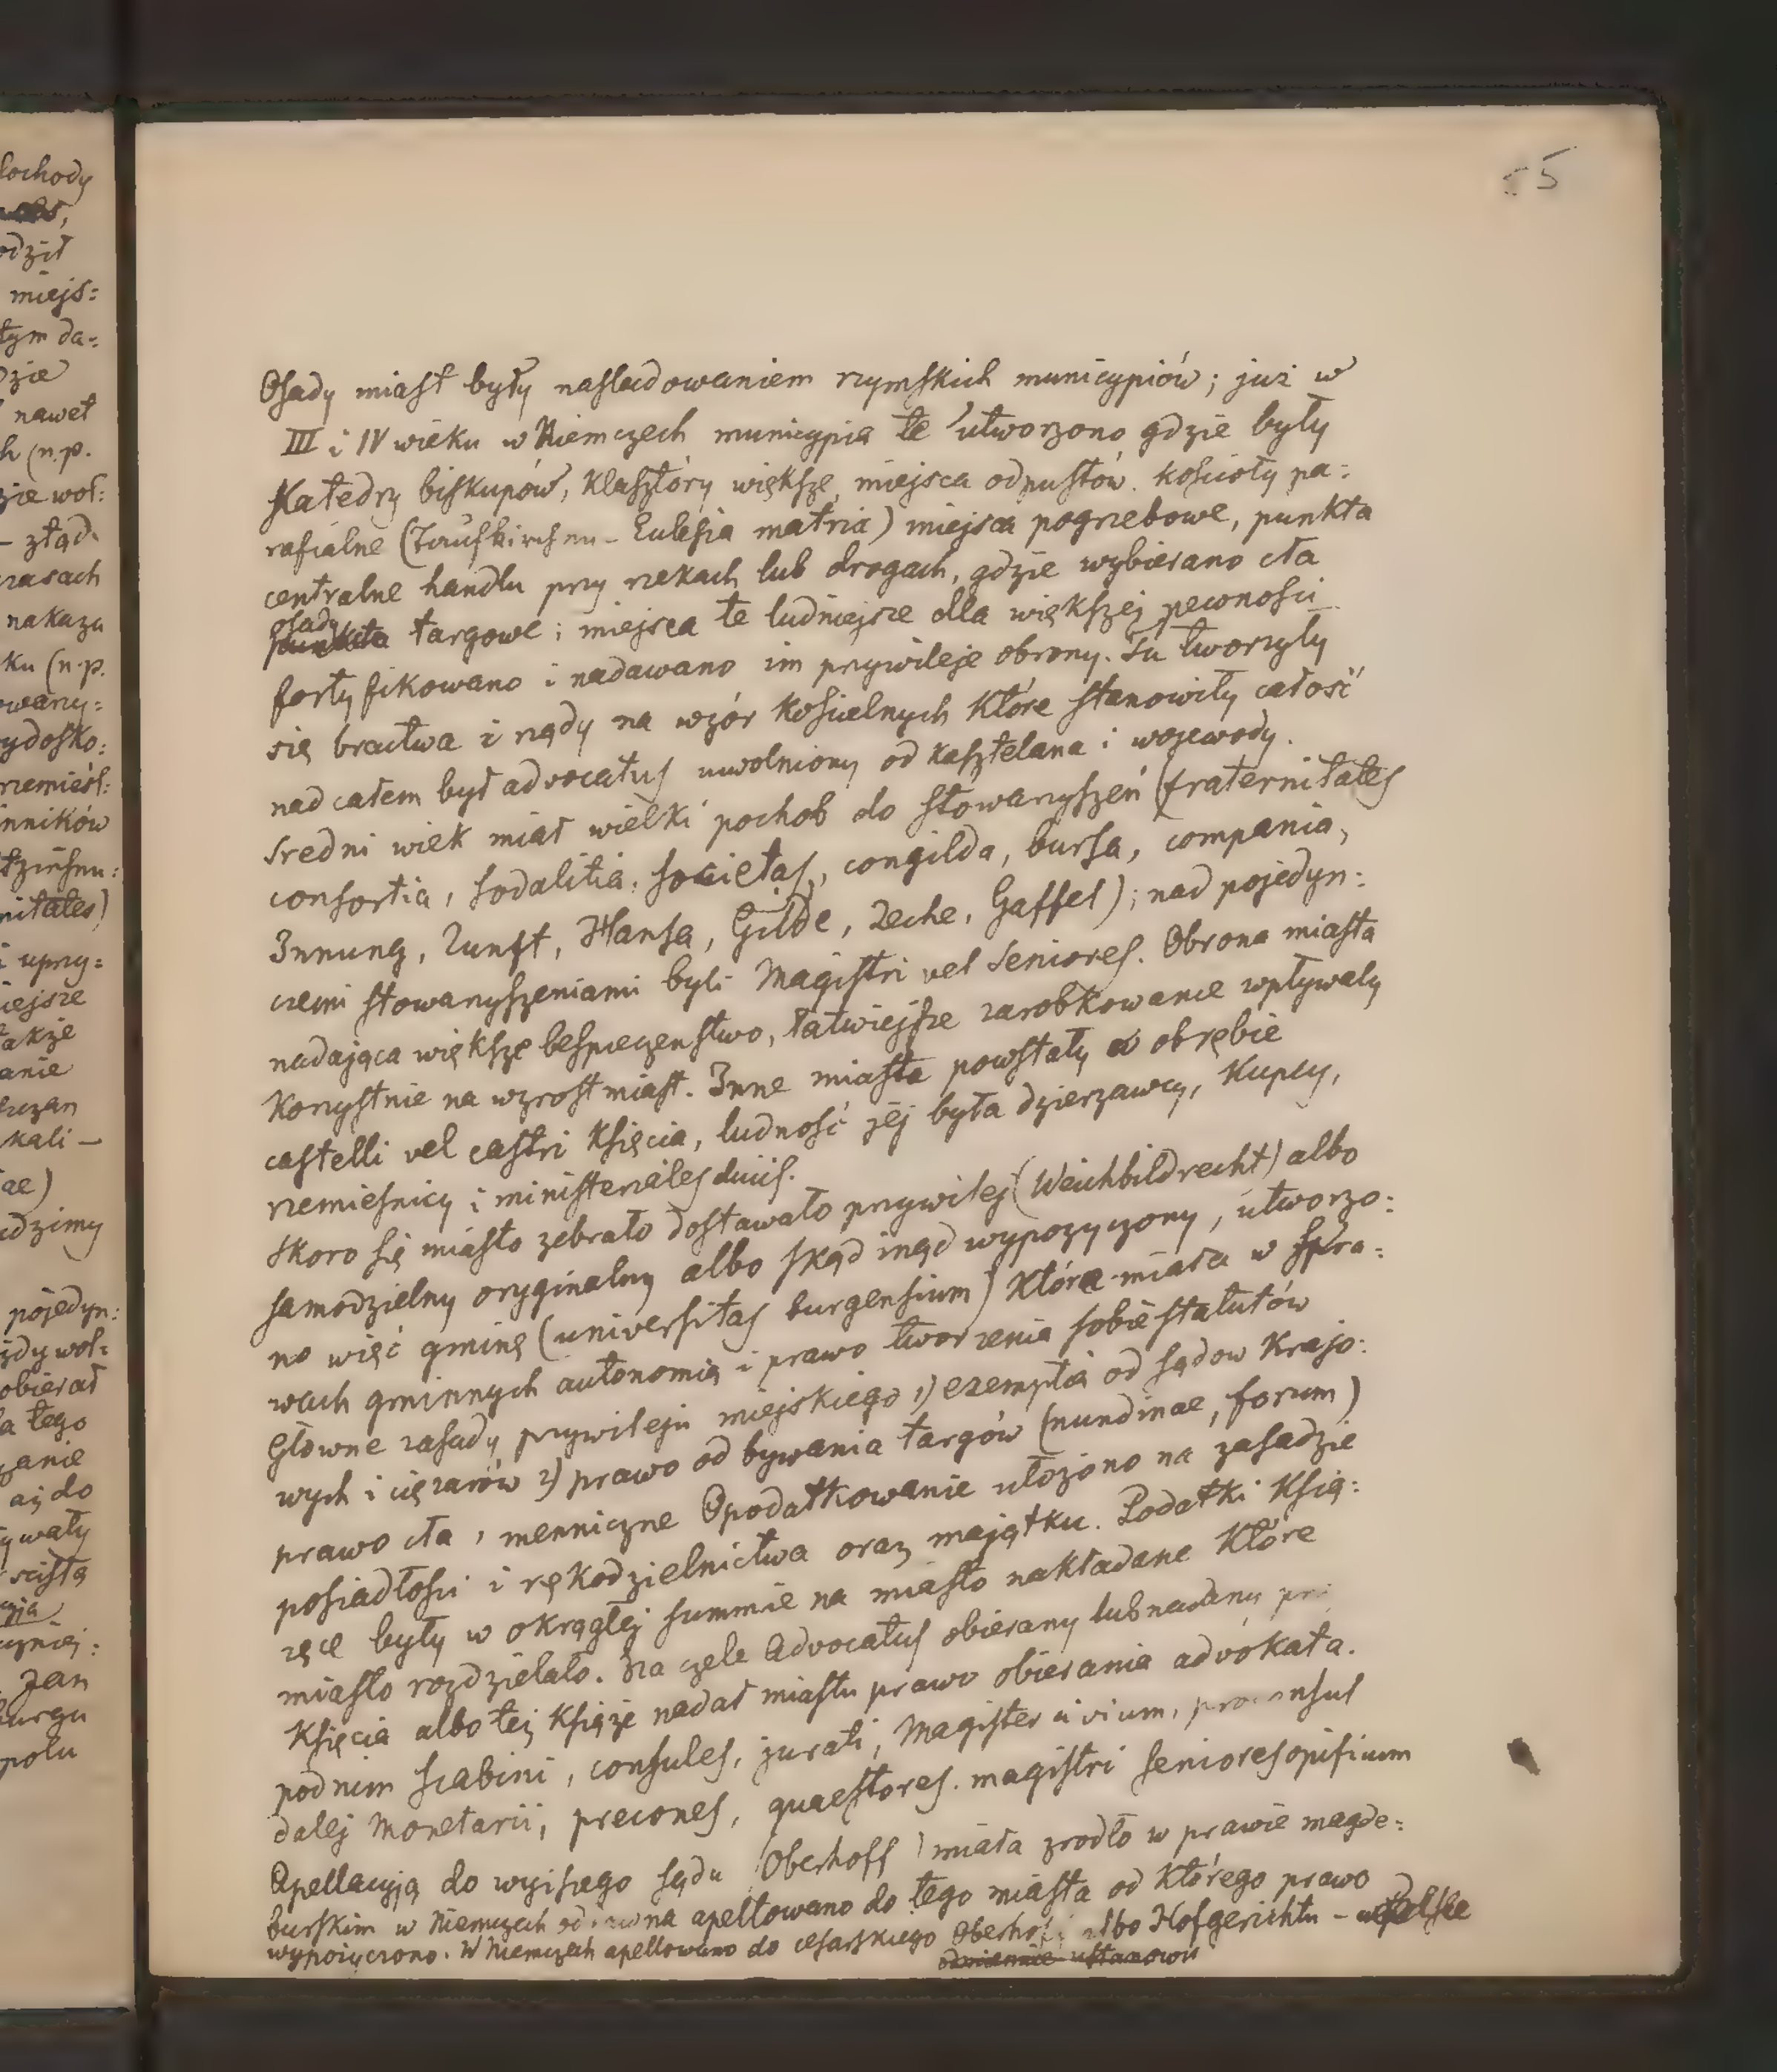 lochody
odził
miejs=
tym da=
dzie
nawet
h (n.p.
zie wol:
– ztąd
czasach
nakazu
ku (n.p.
wany=
ydosko:
rzemieśl:
nników
nitates)
i upry=
iejsze
akże
anie
kali –
ae)
dzimy
pojedyn:
żdy wol=
obierał
a tego
zanie
ają do
ywały
scisłą
Jan
burgu
polu
55
Osady miast były nasladowaniem rzymskich municypiów; już w
III i IV wieku w Niemczech municypia te utworzono gdzie były
Katedry biskupów, Klasztóry większe, miejsca odpustów. kościoły pa=
rafialne (Taufkirchen – Eulesia matria) miejsca pogrzebowe, punkta
centralne handlu przy rzekach lub drogach, gdzie wybierano cła
osady
punkta targowe; miejsca te ludniejsze dla większej pewności
fortyfikowano i nadawano im przywileje obrony. Tu tworzyły
się bractwa i rządy na wzór Kościelnych Które stanowiły całość
nad całem był advocatus uwolniony od kasztelana i wojewody.
Sredni wiek miał wielki pochob do stowarzyszeń (fraternitates
consortia, sodalitia, societas, congilda, bursa, compania,
Innung, Zunft, Hansa, Gilde, Zeche, Gaffel); nad pojedyn:
czemi stowarzyszeniami byli Magistri vel Seniores. Obrona miasta
nadająca większe bespieczenstwo, łatwiejsze zarobkowanie wpływały
Korzystnie na wzrost miast. Inne miasta powstały w obrębie
castelli vel castri Księcia, ludność jej była dzierzawcy, Kupcy,
rzemieśnicy i ministeriales ducis.
Skoro się miasto zebrało dostawało przywilej (Weichbildrecht) albo
samodzielny oryginalny albo skąd inąd wypozyczony, utworzo:
no więć gminę (universitas burgensium) Która miała w spra=
wach gminnych autonomią i prawo tworzenia sobie statutów
Główne zasady przywileju miejskiego 1) exemptia od sądow Krajo:
wych i ciężarów 2) prawo odbywania targów (nundinae, forum)
prawo cła, menniczne Opodatkowanie ułożono na zasadzie
posiadłości i rękodzielnictwa oraz majątku. Podatki Ksią:
żęce były w okrągłej summie na miasto nakładane Które
miasto rozdzielało. Na czele Advocatus obierany lub nadany prz
Księcia albo też Książe nadał miastu prawo obierania advokata.
pod nim scabini, consules, jurati, Magister civium, proconsul
dalej Monetarii, precones, quaestores. magistri seniores opificum
Apellacyją do wyższego sądu (Oberhoff) miała zrodło w prawie magde=
burskim w Niemczech od dawna apellowano do tego miasta od Którego prawo
wypożyczono. W Niemczech apellowano do cesarskiego Oberhof albo Hofgerichtu – w Polsce
odmiennie ustanowił